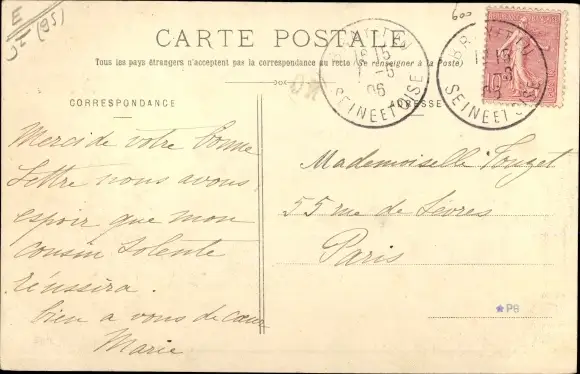 E
(95)
600
CARTE POSTALE
Tous les pays étrangers n'acceptent pas la correspondance au recto (Se renseigner à la Poste)
CORRESPONDANCE
ADRESSE
15
1-5
06
SEINE ET OISE
SEINE ET OISE
Merci de votre bonne
lettre nous avons
espoir que mon
cousin
réussira.
bien a vous de cœur
Marie
Mademoiselle Touzet
55 rue de Sèvres
Paris
P9